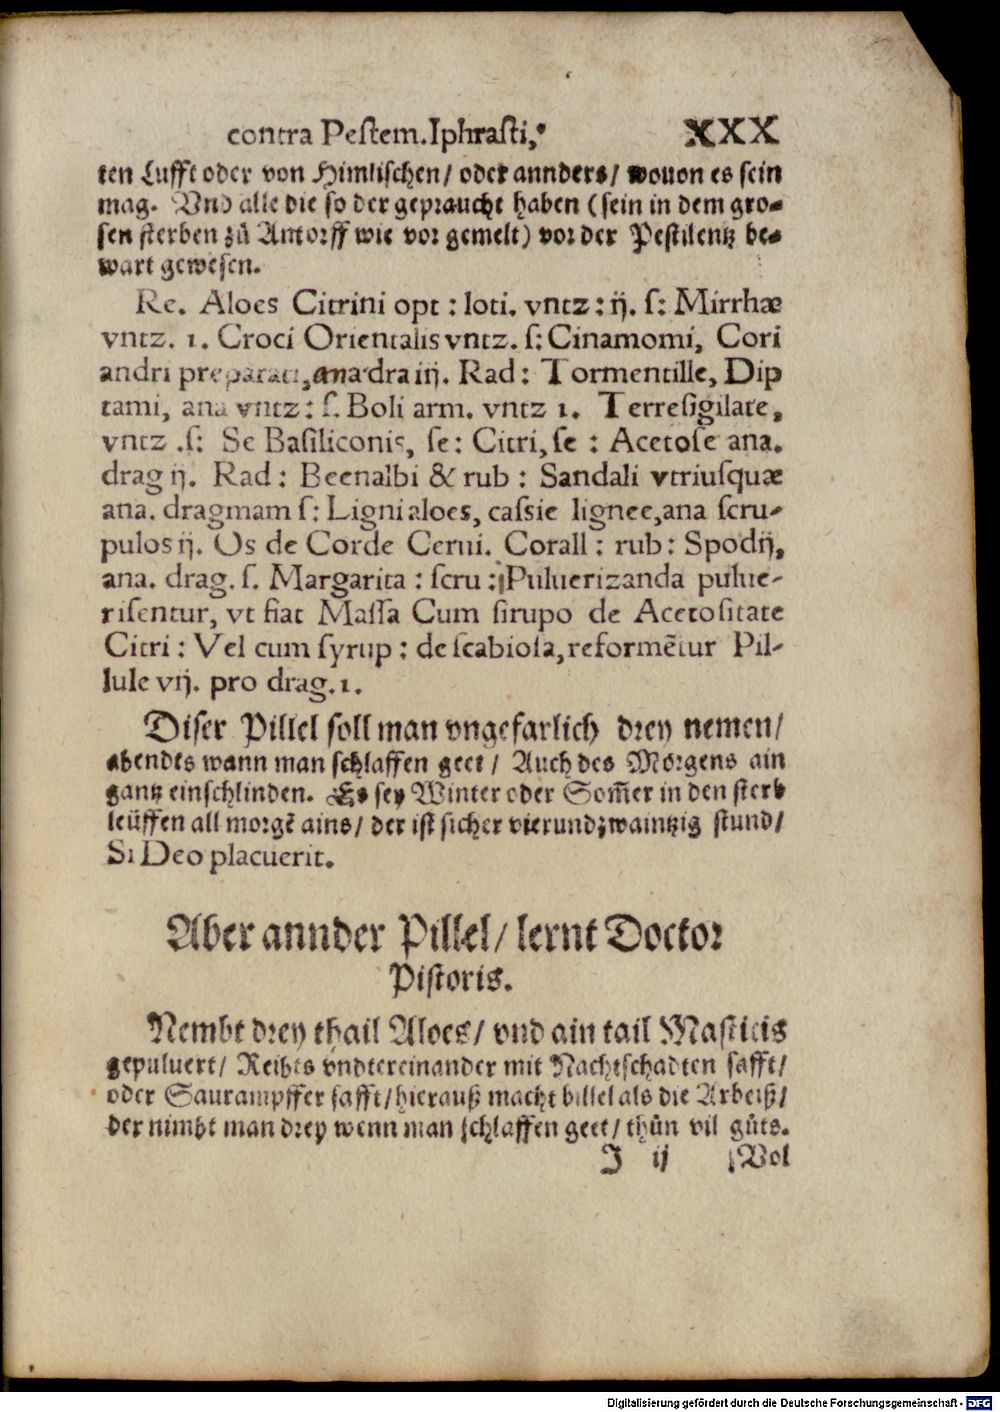 contra Pestem. Iphrasti, XXX
ten Lufft oder von Himlischen/ oder annders/ wouon es sein
mag. Vnd alle die so der gepraucht haben (sein in dem gro-
sen sterben zů Antorff wie vor gemelt) vor der Pestilentz be-
wart gewesen.
Re. Aloes Citrini opt : loti. vntz : ij. ſ: Mirrhæ
vntz. 1. Croci Orientalis vntz. ſ: Cinamomi, Cori
andri preparati, ana dra iij. Rad : Tormentille, Dip
tami, ana vntz : ſ. Boli arm. vntz 1. Terresigilate,
vntz .ſ: Se Basiliconis, se : Citri, se : Acetose ana.
drag ij. Rad : Beenalbi & rub : Sandali vtriusquæ
ana. dragmam ſ: Ligni aloes, cassie lignee, ana scru-
pulos ij. Os de Corde Cerui. Corall : rub : Spodij,
ana. drag. ſ. Margarita : scru : j Puluerizanda pulue-
risentur, vt fiat Massa Cum sirupo de Acetositate
Citri : Vel cum syrup : de scabiosa, reformẽtur Pil-
lule vij. pro drag. 1.
Diser Pillel soll man vngefarlich drey nemen/
abendts wann man schlaffen geet/ Auch des Morgens ain
gantz einschlinden. Es sey Winter oder Som̃er in den sterb
leüffen all morgẽ ains/ der ist sicher vierundzwaintzig stund/
Si Deo placuerit.
Aber annder Pillel/ lernt Doctor
Pistoris.
Nembt drey thail Aloes/ vnd ain tail Masticis
gepuluert/ Reibts vndtereinander mit Nachtschadten safft/
oder Saurampffer safft/ hierauß macht billel als die Arbeiß/
der nimbt man drey wenn man schlaffen geet/ thůn vil gůts.
J ij Vol
Digitalisierung gefördert durch die Deutsche Forschungsgemeinschaft - DFG